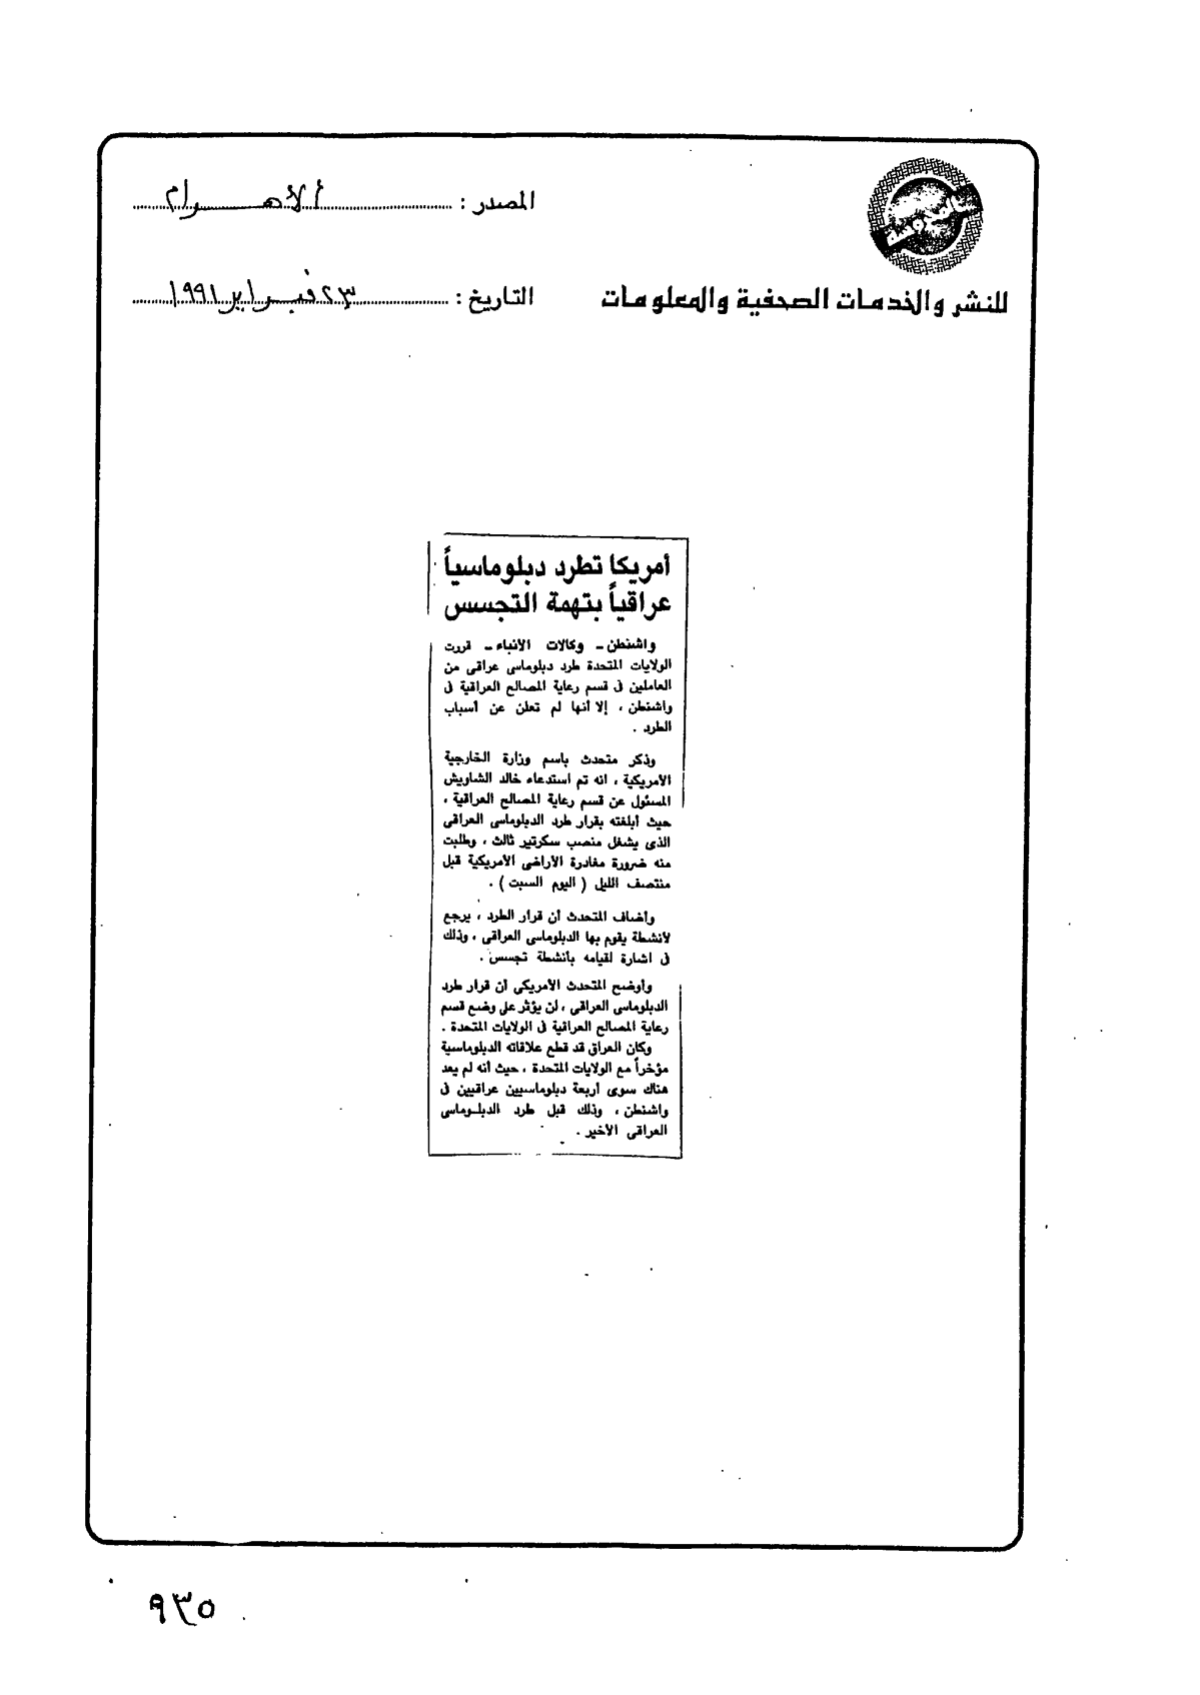 المصدر : الأهـــرام
التاريخ : ٢٣ فبراير ١٩٩١
للنشر والخدمات الصحفية والمعلومات
أمريكا تطرد دبلوماسياً
عراقياً بتهمة التجسس
واشنطن ــ وكالات الأنباء ــ قررت
الولايات المتحدة طرد دبلوماسى عراقى من
العاملين فى قسم رعاية المصالح العراقية فى
واشنطن ، إلا أنها لم تعلن عن أسباب
الطرد .
وذكر متحدث باسم وزارة الخارجية
الأمريكية ، انه تم استدعاء خالد الشاويش
المسئول عن قسم رعاية المصالح العراقية ،
حيث أبلغته بقرار طرد الدبلوماسى العراقى
الذى يشغل منصب سكرتير ثالث ، وطلبت
منه ضرورة مغادرة الأراضى الأمريكية قبل
منتصف الليل ( اليوم السبت ) .
وأضاف المتحدث أن قرار الطرد ، يرجع
لأنشطة يقوم بها الدبلوماسى العراقى ، وذلك
فى اشارة لقيامه بأنشطة تجسس .
وأوضح المتحدث الأمريكى أن قرار طرد
الدبلوماسى العراقى ، لن يؤثر على وضع قسم
رعاية المصالح العراقية فى الولايات المتحدة .
وكان العراق قد قطع علاقاته الدبلوماسية
مؤخراً مع الولايات المتحدة ، حيث أنه لم يعد
هناك سوى أربعة دبلوماسيين عراقيين فى
واشنطن ، وذلك قبل طرد الدبلـوماسى
العراقى الأخير .
٩٣٥